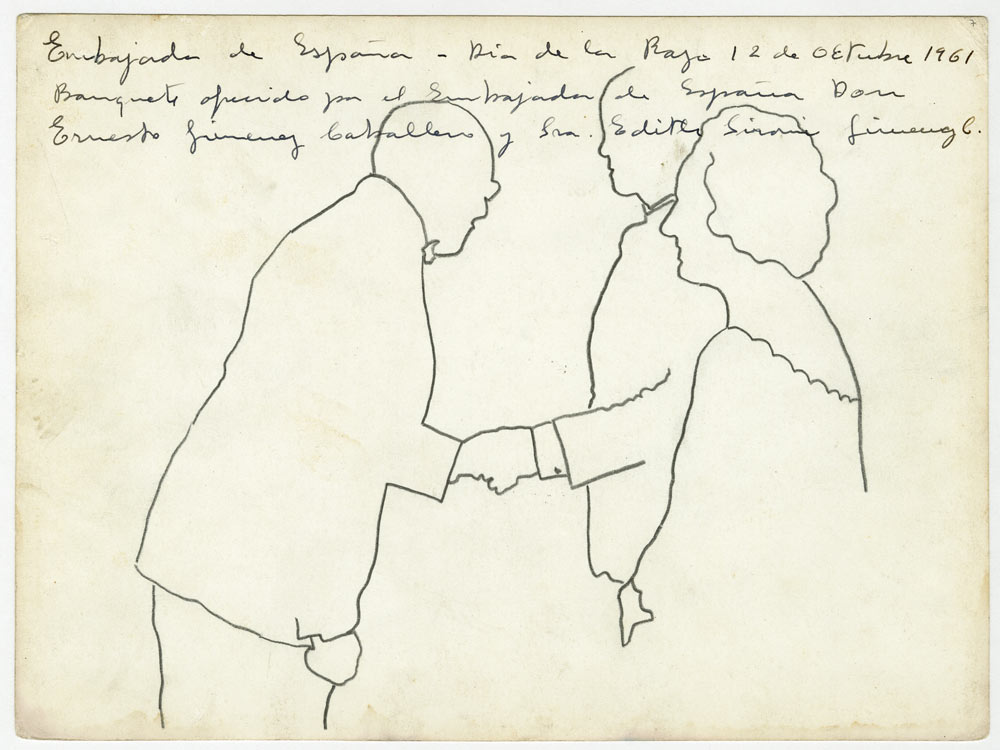 Embajada de España - Dia de la Raza 12 de OCTubre 1961
Banquete ofrecido por el Embajador de España Don
Ernesto Gimenez Caballero y Sra. Edith Sironi Gimenez C.